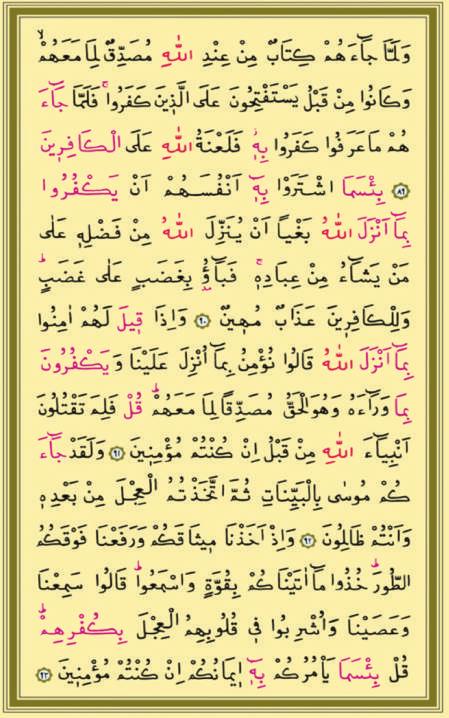 وَلَمَّا جَٓاءَهُمْ كِتَابٌ مِنْ عِنْدِ اللّٰهِ مُصَدِّقٌ لِمَا مَعَهُمْۙ
وَكَانُوا مِنْ قَبْلُ يَسْتَفْتِحُونَ عَلَى الَّذٖينَ كَفَرُواۚ فَلَمَّا جَٓاءَ
هُمْ مَا عَرَفُوا كَفَرُوا بِهٖؗ فَلَعْنَةُ اللّٰهِ عَلَى الْكَافِرٖينَ
﴿٨٩﴾ بِئْسَمَا اشْتَرَوْا بِهٖٓ اَنْفُسَهُمْ اَنْ يَكْفُرُوا
بِمَٓا اَنْزَلَ اللّٰهُ بَغْياً اَنْ يُنَزِّلَ اللّٰهُ مِنْ فَضْلِهٖ عَلٰى
مَنْ يَشَٓاءُ مِنْ عِبَادِهٖۚ فَبَٓاؤُ۫ بِغَضَبٍ عَلٰى غَضَبٍؕ
وَلِلْكَافِرٖينَ عَذَابٌ مُهٖينٌ ﴿٩٠﴾ وَاِذَا قٖيلَ لَهُمْ اٰمِنُوا
بِمَٓا اَنْزَلَ اللّٰهُ قَالُوا نُؤْمِنُ بِمَٓا اُنْزِلَ عَلَيْنَا وَيَكْفُرُونَ
بِمَا وَرَٓاءَهُ وَهُوَ الْحَقُّ مُصَدِّقاً لِمَا مَعَهُمْؕ قُلْ فَلِمَ تَقْتُلُونَ
اَنْبِيَٓاءَ اللّٰهِ مِنْ قَبْلُ اِنْ كُنْتُمْ مُؤْمِنٖينَ ﴿٩١﴾ وَلَقَدْ جَٓاءَ
كُمْ مُوسٰى بِالْبَيِّنَاتِ ثُمَّ اتَّخَذْتُمُ الْعِجْلَ مِنْ بَعْدِهٖ
وَاَنْتُمْ ظَالِمُونَ ﴿٩٢﴾ وَاِذْ اَخَذْنَا مٖيثَاقَكُمْ وَرَفَعْنَا فَوْقَكُمُ
الطُّورَؕ خُذُوا مَٓا اٰتَيْنَاكُمْ بِقُوَّةٍ وَاسْمَعُواؕ قَالُوا سَمِعْنَا
وَعَصَيْنَا وَاُشْرِبُوا فٖي قُلُوبِهِمُ الْعِجْلَ بِكُفْرِهِمْؕ
قُلْ بِئْسَمَا يَاْمُرُكُمْ بِهٖٓ اٖيمَانُكُمْ اِنْ كُنْتُمْ مُؤْمِنٖينَ ﴿٩٣﴾